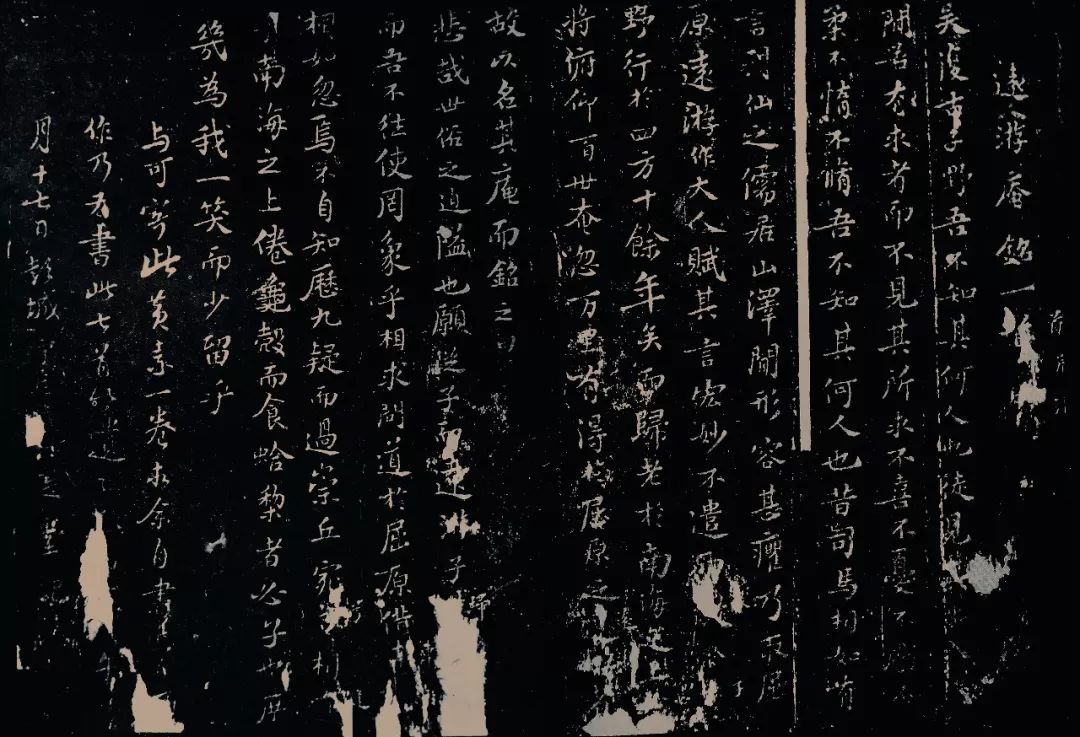 遠游庵銘一首
吳復古子野吾不知其何人也徒見
聞若有求者而不見其所求不喜不憂不
筆不惰不脩吾不知其何人也昔司馬相如有
言列仙之儒居山澤間形容甚癯乃取屈
原遠游作大人賦其言宏妙不遣
野行於四方十餘年矣而歸老於南海之上
將俯仰百世奄忽万里有得於屈原之
故以名其庵而銘之曰
悲哉世俗之迫隘也願從子而遠游子歸
而吾不往使罔象乎相求問道於屈原借
相如忽焉不自知歷九疑而過崇丘宛
南海之上倦龜殼而食蛤梨者必子也庶
幾為我一笑而少留乎
与可寄此黃素一卷求余自書
作乃為書此七首
月十七日彭城